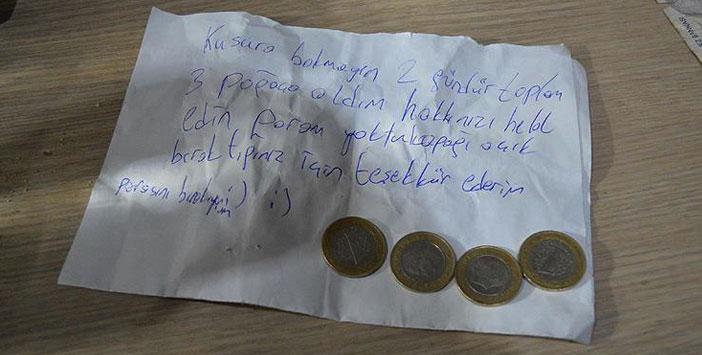 Kusura bakmayın 2 gündür toplam
3 poğaça aldım hakkınızı helal
edin param yoktu kapağı açık
bıraktığınız için teşekkür ederim
parasını bırakıyım :) :)